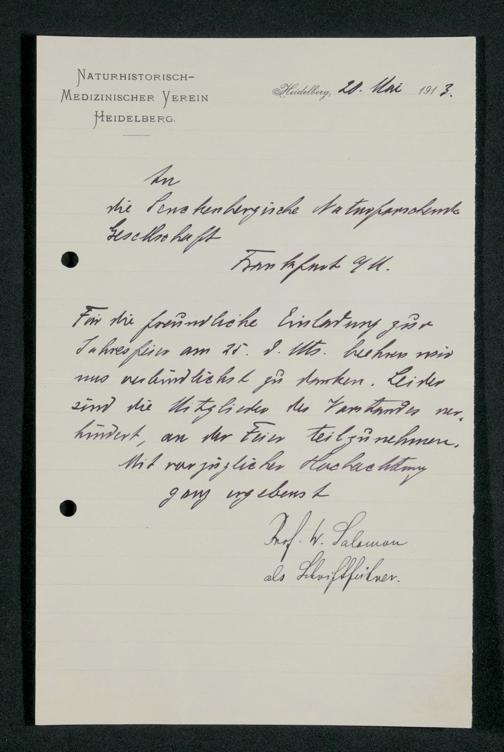 NATURHISTORISCH-
MEDIZINISCHER VEREIN
HEIDELBERG.
Heidelberg, 20. Mai 1913.
An
die Senckenbergische Naturforschende
Gesellschaft
Frankfurt a/M.
Für die freundliche Einladung zur
Jahresfeier am 25. d. Mts. beehren wir
uns verbindlichst zu danken. Leider
sind die Mitglieder des Vorstandes ver-
hindert, an der Feier teilzunehmen.
Mit vorzüglicher Hochachtung
ganz ergebenst
Prof. W. Salomon
als Schriftführer.